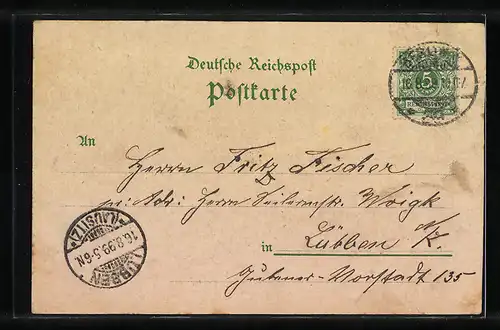 Deutsche Reichspost
Postkarte
5
REICHSPOST
An
Herrn Fritz Fischer
p: Adr: Herrn Seilermstr. Woigk
in Lübben a/L.
Gubener-Vorstadt 135
LÜBBEN (LAUSITZ)
16.8.99.5-6N.